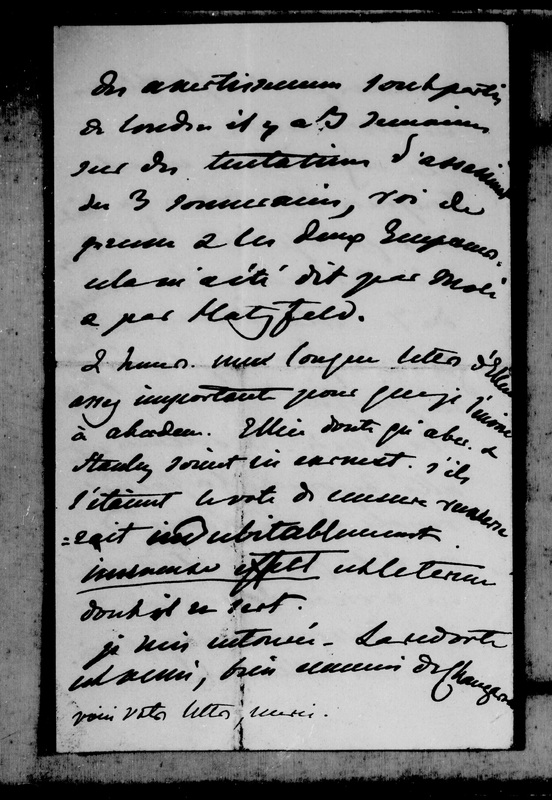 des avertissemens sont partis
de Londres il y a 3 semaines
sur des tentatives d'assassinat
des 3 souverains, roi de
prusse & les deux Empereurs.
cela m'a été dit par Molé
& par Hatzfeld.
2 heures. une longue lettre d'Ellice
assez importante pour que je l'envoie
à aberdeen. Ellice doute qu'aber. &
Stanley soient in earnest. s'ils
l'étaient le vote de censure renverse
=rait indubitablement
immense effet est le terme
dont il se sert.
je suis entourée - Laredorte
est aussi, bien ennemi de Changarnier
voici votre lettre, merci.